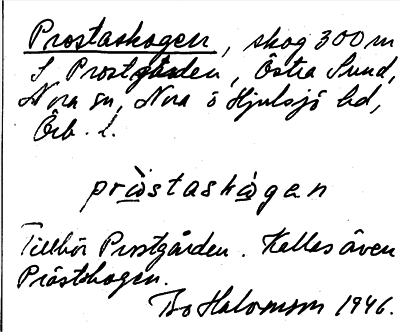 Prostaskogen, skog 300 m
S Prostgården, Östra Sund,
Nora sn, Nora ö Hjulsjö bd,
Örb. l.
pròstaskògen
Tillhör Prostgården. Kallas även
Prästskogen.
Bo Halomson 1946.